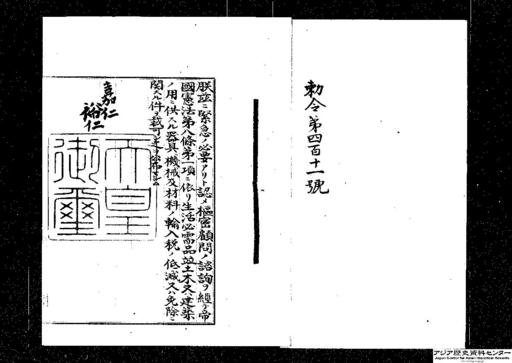 勅令第四百十一號
朕茲ニ緊急ノ必要アリト認メ樞密顧問ノ諮詢ヲ經テ帝
國憲法第八條第一項ニ依リ生活必需品竝土木又ハ建築
ノ用ニ供スル器具、機械及材料ノ輸入税ノ低減又ハ免除ニ
關スル件ヲ裁可シ之ヲ公布セシム
嘉仁
裕仁
天皇
御璽
アジア歴史資料センター
Japan Center for Asian Historical Records